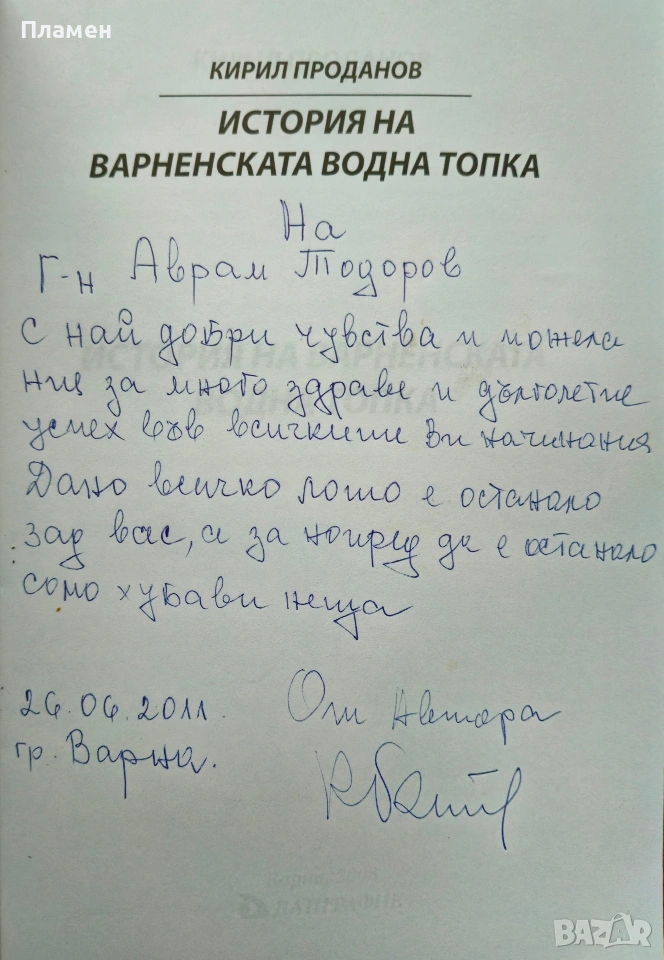 Пламен
КИРИЛ ПРОДАНОВ
ИСТОРИЯ НА
ВАРНЕНСКАТА ВОДНА ТОПКА
На
Г-н Аврам Тодоров
С най добри чувства и пожела
ния за много здраве и дълголетие
успех във всичките Ви начинания
Дано всичко лошо е останало
зад вас, а за напред да е останало
само хубави неща
26.06.2011.
гр. Варна.
От автора
Варна, 2008
BAZAR